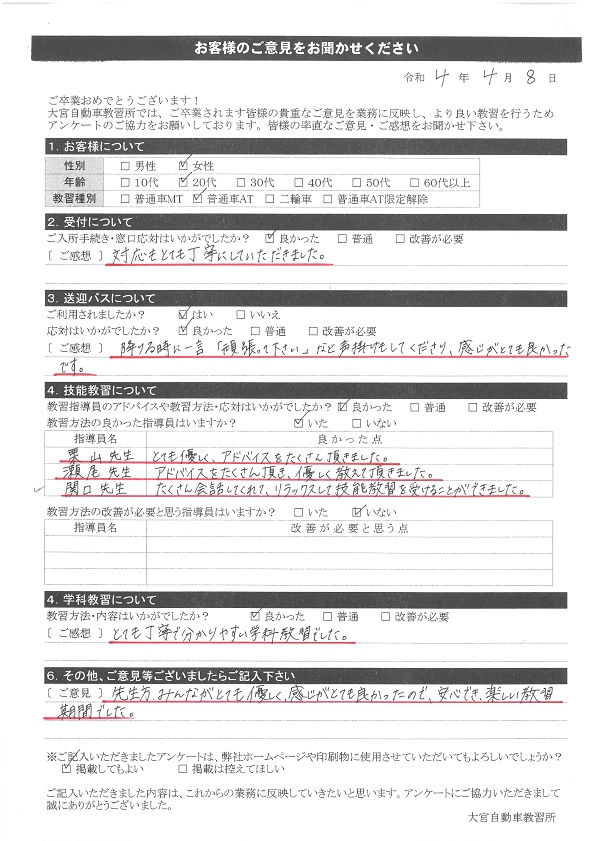 お客様のご意見をお聞かせください
令和 4 年 4 月 8 日
ご卒業おめでとうございます！
大宮自動車教習所では、ご卒業されます皆様の貴重なご意見を業務に反映し、より良い教習を行うため
アンケートのご協力をお願いしております。皆様の率直なご意見・ご感想をお聞かせ下さい。
1. お客様について
性別 □ 男性 ☑ 女性
年齢 □ 10代 ☑ 20代 □ 30代 □ 40代 □ 50代 □ 60代以上
教習種別 □ 普通車MT ☑ 普通車AT □ 二輪車 □ 普通車AT限定解除
2. 受付について
ご入所手続き・窓口応対はいかがでしたか？ ☑ 良かった □ 普通 □ 改善が必要
〔 ご感想 〕 対応もとても丁寧にしていただきました。
3. 送迎バスについて
ご利用されましたか？ ☑ はい □ いいえ
応対はいかがでしたか？ ☑ 良かった □ 普通 □ 改善が必要
〔 ご感想 〕 降りる時に一言「頑張って下さい」など声掛けもしてくださり、感じがとても良かった
です。
4. 技能教習について
教習指導員のアドバイスや教習方法・応対はいかがでしたか？ ☑ 良かった □ 普通 □ 改善が必要
教習方法の良かった指導員はいますか？ ☑ いた □ いない
指導員名 良かった点
栗山先生 とても優しく、アドバイスをたくさん頂きました。
瀬尾先生 アドバイスをたくさん頂き、優しく教えて頂きました。
✓ 関口先生 たくさん会話してくれて、リラックスして技能教習を受けることができました。
教習方法の改善が必要と思う指導員はいますか？ □ いた ☑ いない
指導員名 改善が必要と思う点
4. 学科教習について
教習方法・内容はいかがでしたか？ ☑ 良かった □ 普通 □ 改善が必要
〔 ご感想 〕 とても丁寧で分かりやすい学科教習でした。
6. その他、ご意見等ございましたらご記入下さい
〔 ご意見 〕 先生方みんながとても優しく、感じがとても良かったので、安心でき、楽しい教習
期間でした。
※ご記入いただきましたアンケートは、弊社ホームページや印刷物に使用させていただいてもよろしいでしょうか？
☑ 掲載してもよい □ 掲載は控えてほしい
ご記入いただきました内容は、これからの業務に反映していきたいと思います。アンケートにご協力いただきまして
誠にありがとうございました。
大宮自動車教習所